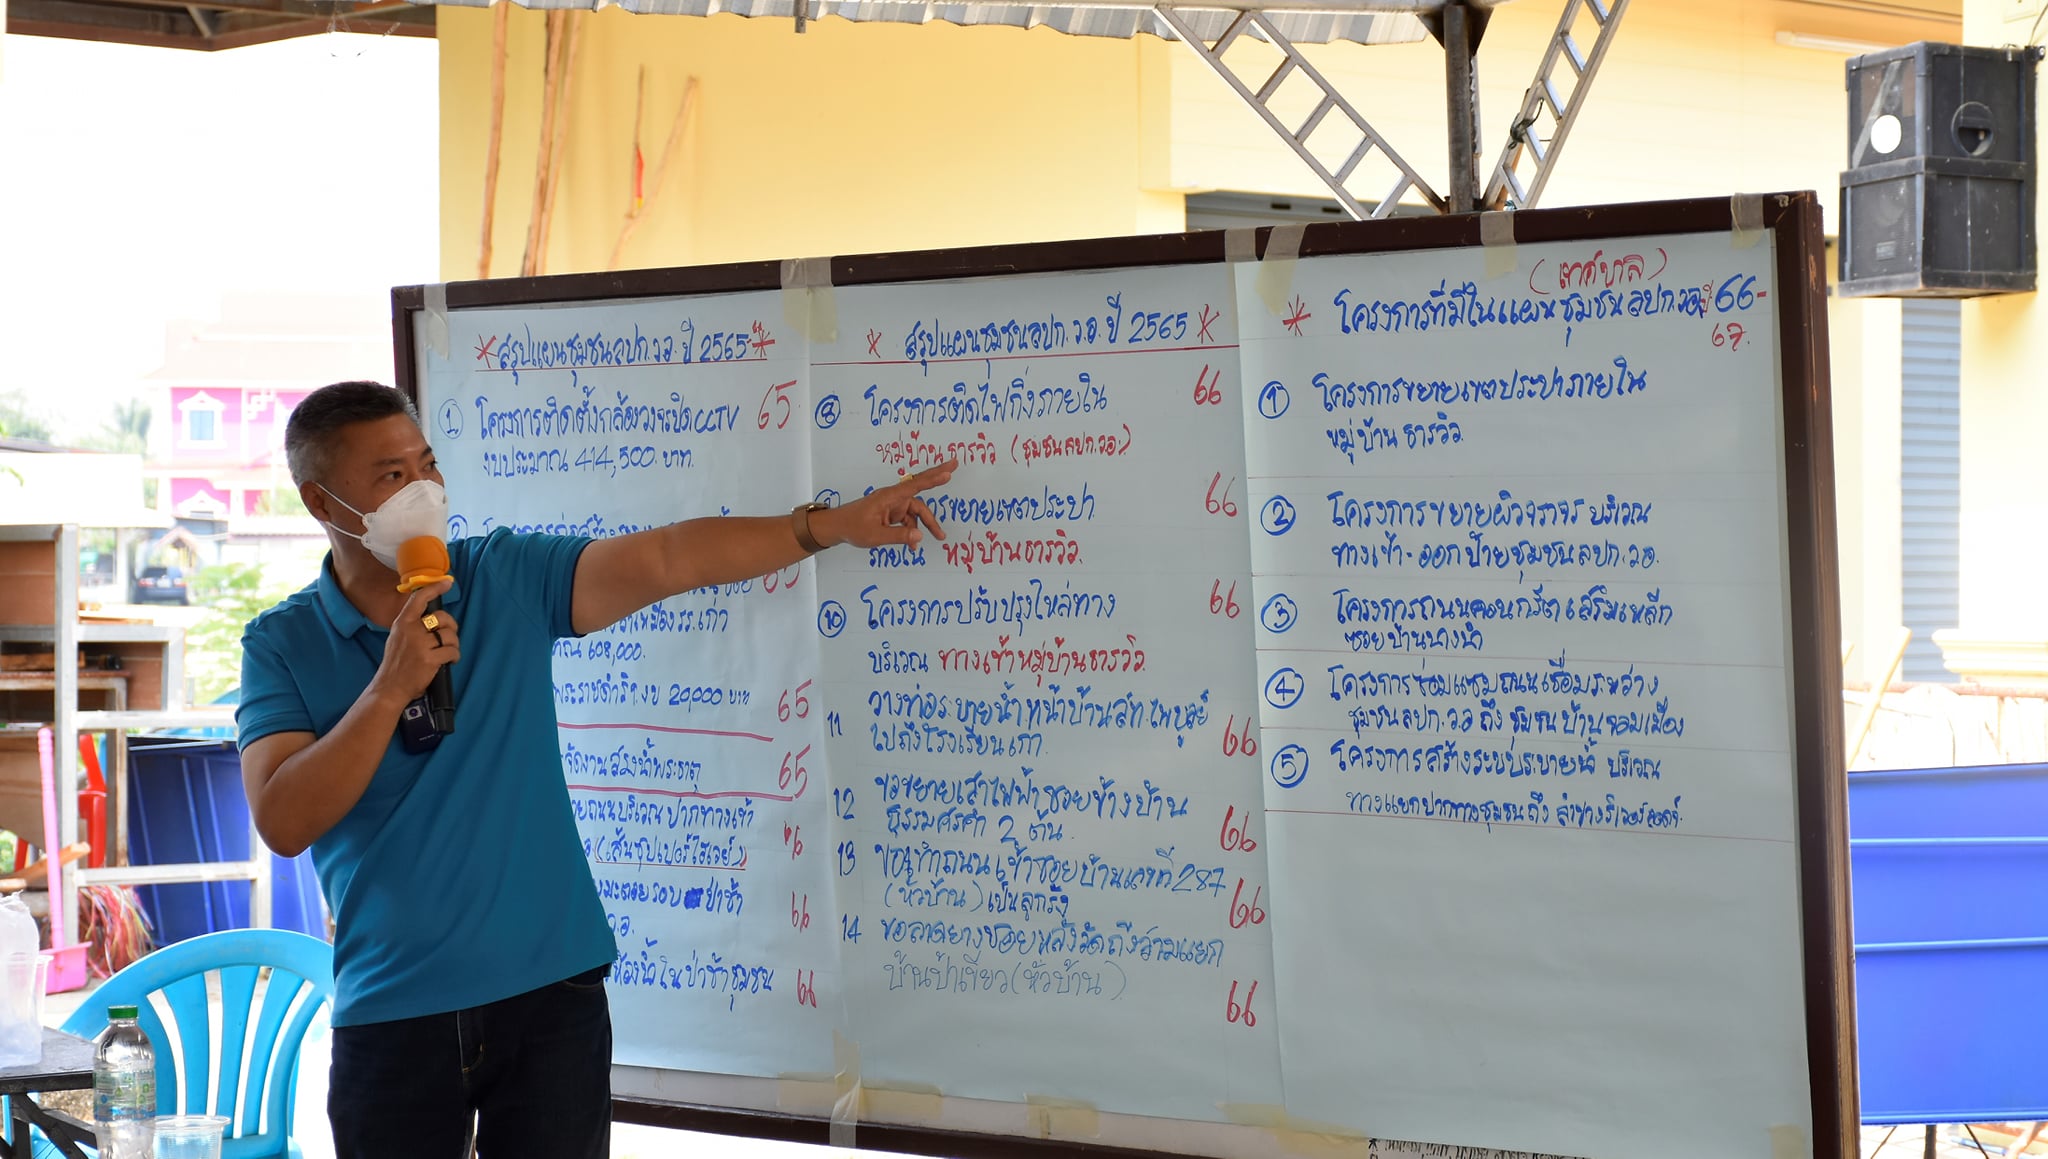 *สรุปแผนชุมชนลปก.วอ. ปี 2565*
① โครงการติดตั้งกล้องวงจรปิด CCTV 65
งบประมาณ 414,500 บาท.
②
65
608,000.
พระราชดำริฯ งบ 20,000 บาท 65
จัดงานสรงน้ำพระธาตุ 65
ถนนบริเวณ ปากทางเข้า
(เส้นซุปเปอร์ไฮเวย์) 66
รอบ ป่าช้า
66
ห้องน้ำในป่าช้าชุมชน 66
* สรุปแผนชุมชนลปก.วอ. ปี 2565 *
⑧ โครงการติดไฟกิ่งภายใน 66
หมู่บ้านธารวิว (ชุมชนลปก.วอ.)
การขยายเขตประปา 66
ภายใน หมู่บ้านธารวิว.
⑩ โครงการปรับปรุงไหล่ทาง 66
บริเวณ ทางเข้าหมู่บ้านธารวิว.
11 วางท่อระบายน้ำ หน้าบ้านสท.ไพบูลย์
ไปถึงโรงเรียนเก่า. 66
12 ขอขยายเสาไฟฟ้าซอยข้างบ้าน
2 ต้น. 66
13 ขอทำถนนเข้าซอยบ้านเลขที่ 287
(หัวบ้าน) เป็นลูกรัง 66
14 ขอลาดยางซอยหลังวัดถึงสามแยก
บ้านป้าเขียว (หัวบ้าน) 66
(เทศบาล)
* โครงการที่มีในแผนชุมชนลปก.วอ. ปี 66-
67.
① โครงการขยายเขตประปาภายใน
หมู่บ้านธารวิว.
② โครงการขยายผิวจราจร บริเวณ
ทางเข้า-ออก ป้ายชุมชนลปก.วอ.
③ โครงการถนนคอนกรีตเสริมเหล็ก
ซอยบ้านนางน้ำ
④ โครงการซ่อมแซมถนนเชื่อมระหว่าง
ชุมชนลปก.วอ ถึง ชุมชนบ้านจอมเมือง
⑤ โครงการสร้างระบบระบายน้ำ บริเวณ
ทางแยกปากทางชุมชนถึง